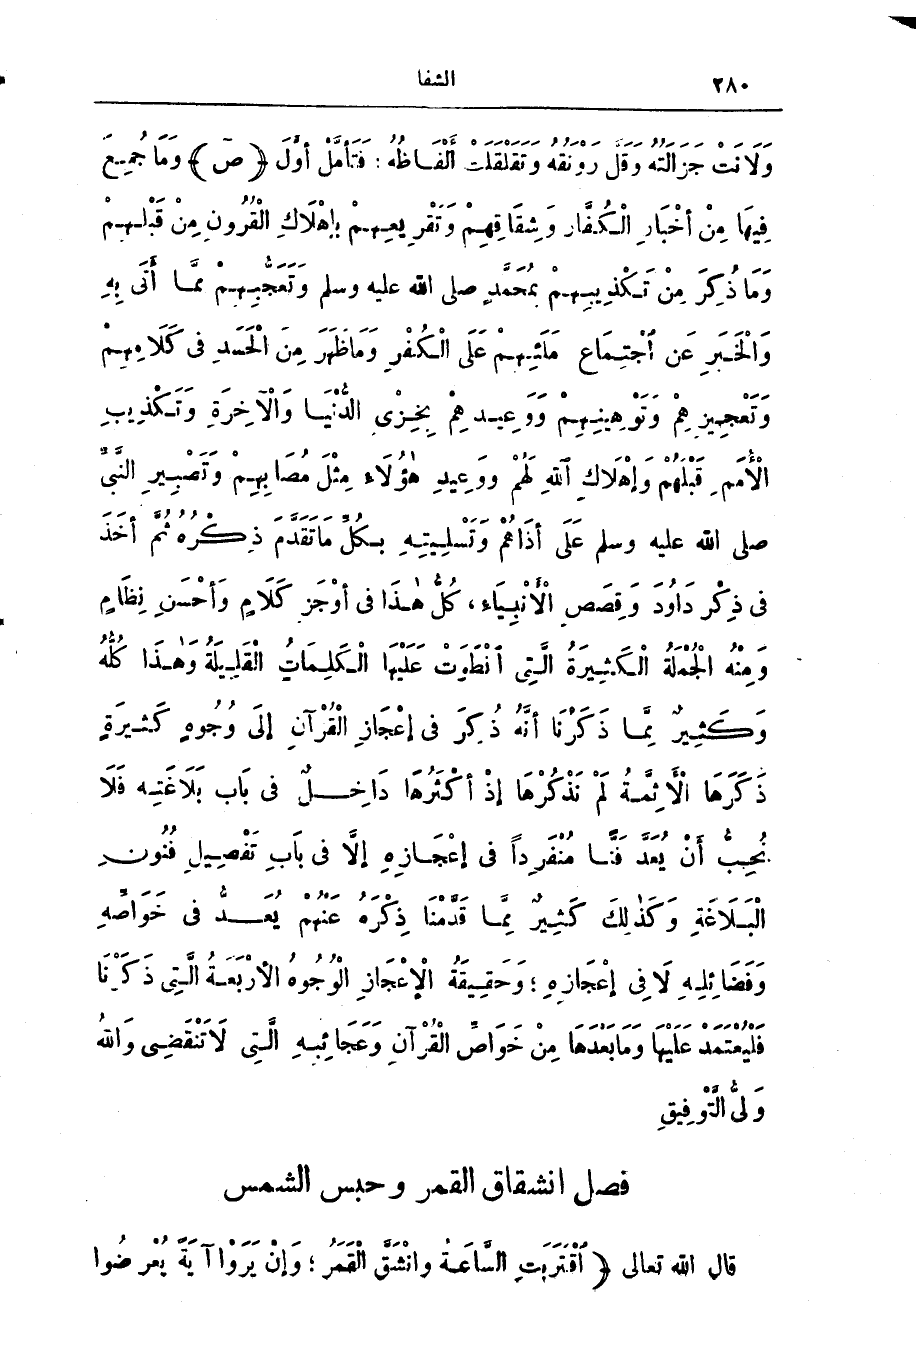 ٢٨٠
الشفا
وَلَانَتْ جَزَالَتُهُ وَقَلَّ رَوْنَقُهُ وَتَقَلْقَلَتْ أَلْفَاظُهُ : فَتَأَمَّلْ أَوَّلَ ﴿ صٓ ﴾ وَمَا جُمِعَ
فِيهَا مِنْ أَخْبَارِ الْكُفَّارِ وَشِقَاقِهِمْ وَتَقْرِيعِهِمْ بِإِهْلَاكِ الْقُرُونِ مِنْ قَبْلِهِمْ
وَمَا ذُكِرَ مِنْ تَكْذِيبِهِمْ بِمُحَمَّدٍ صلى الله عليه وسلم وَتَعَجُّبِهِمْ مِمَّا أَتَى بِهِ
وَالْخَبَرِ عَنِ اجْتِمَاعِ مَلَئِهِمْ عَلَى الْكُفْرِ وَمَا ظَهَرَ مِنَ الْحَسَدِ فى كَلَامِهِمْ
وَتَعْجِيزِهِمْ وَتَوْهِينِهِمْ وَوَعِيدِهِمْ بِخِزْىِ الدُّنْيَا وَالْآخِرَةِ وَتَكْذِيبِ
الْأُمَمِ قَبْلَهُمْ وَإِهْلَاكِ اللهِ لَهُمْ وَوَعِيدِ هٰؤُلَاءِ مِثْلَ مُصَابِهِمْ وَتَصْبِيرِ النَّبِىِّ
صلى الله عليه وسلم عَلَى أَذَاهُمْ وَتَسْلِيَتِهِ بِكُلِّ مَا تَقَدَّمَ ذِكْرُهُ ثُمَّ أَخَذَ
فى ذِكْرِ دَاوُدَ وَقِصَصِ الْأَنْبِيَاءِ، كُلُّ هٰذَا فى أَوْجَزِ كَلَامٍ وَأَحْسَنِ نِظَامٍ
وَمِنْهُ الْجُمْلَةُ الْكَثِيرَةُ الَّتِى انْطَوَتْ عَلَيْهَا الْكَلِمَاتُ الْقَلِيلَةُ وَهٰذَا كُلُّهُ
وَكَثِيرٌ مِمَّا ذَكَرْنَا أَنَّهُ ذُكِرَ فى إِعْجَازِ الْقُرْآنِ إِلَى وُجُوهٍ كَثِيرَةٍ
ذَكَرَهَا الْأَئِمَّةُ لَمْ نَذْكُرْهَا إِذْ أَكْثَرُهَا دَاخِلٌ فى بَابِ بَلَاغَتِهِ فَلَا
نُحِبُّ أَنْ يُعَدَّ فَنًّا مُنْفَرِداً فى إِعْجَازِهِ إِلَّا فى بَابِ تَفْصِيلِ فُنُونِ
الْبَلَاغَةِ وَكَذٰلِكَ كَثِيرٌ مِمَّا قَدَّمْنَا ذِكْرَهُ عَنْهُمْ يُعَدُّ فى خَوَاصِّهِ
وَفَضَائِلِهِ لَا فى إِعْجَازِهِ ؛ وَحَقِيقَةُ الْإِعْجَازِ الْوُجُوهُ الْأَرْبَعَةُ الَّتِى ذَكَرْنَا
فَلْيُعْتَمَدْ عَلَيْهَا وَمَا بَعْدَهَا مِنْ خَوَاصِّ الْقُرْآنِ وَعَجَائِبِهِ الَّتِى لَا تَنْقَضِى وَاللهُ
وَلِىُّ التَّوْفِيقِ
فصل انشقاق القمر وحبس الشمس
قال الله تعالى ﴿ اقْتَرَبَتِ السَّاعَةُ وانْشَقَّ الْقَمَرُ ؛ وَإِنْ يَرَوْا آيَةً يُعْرِضُوا